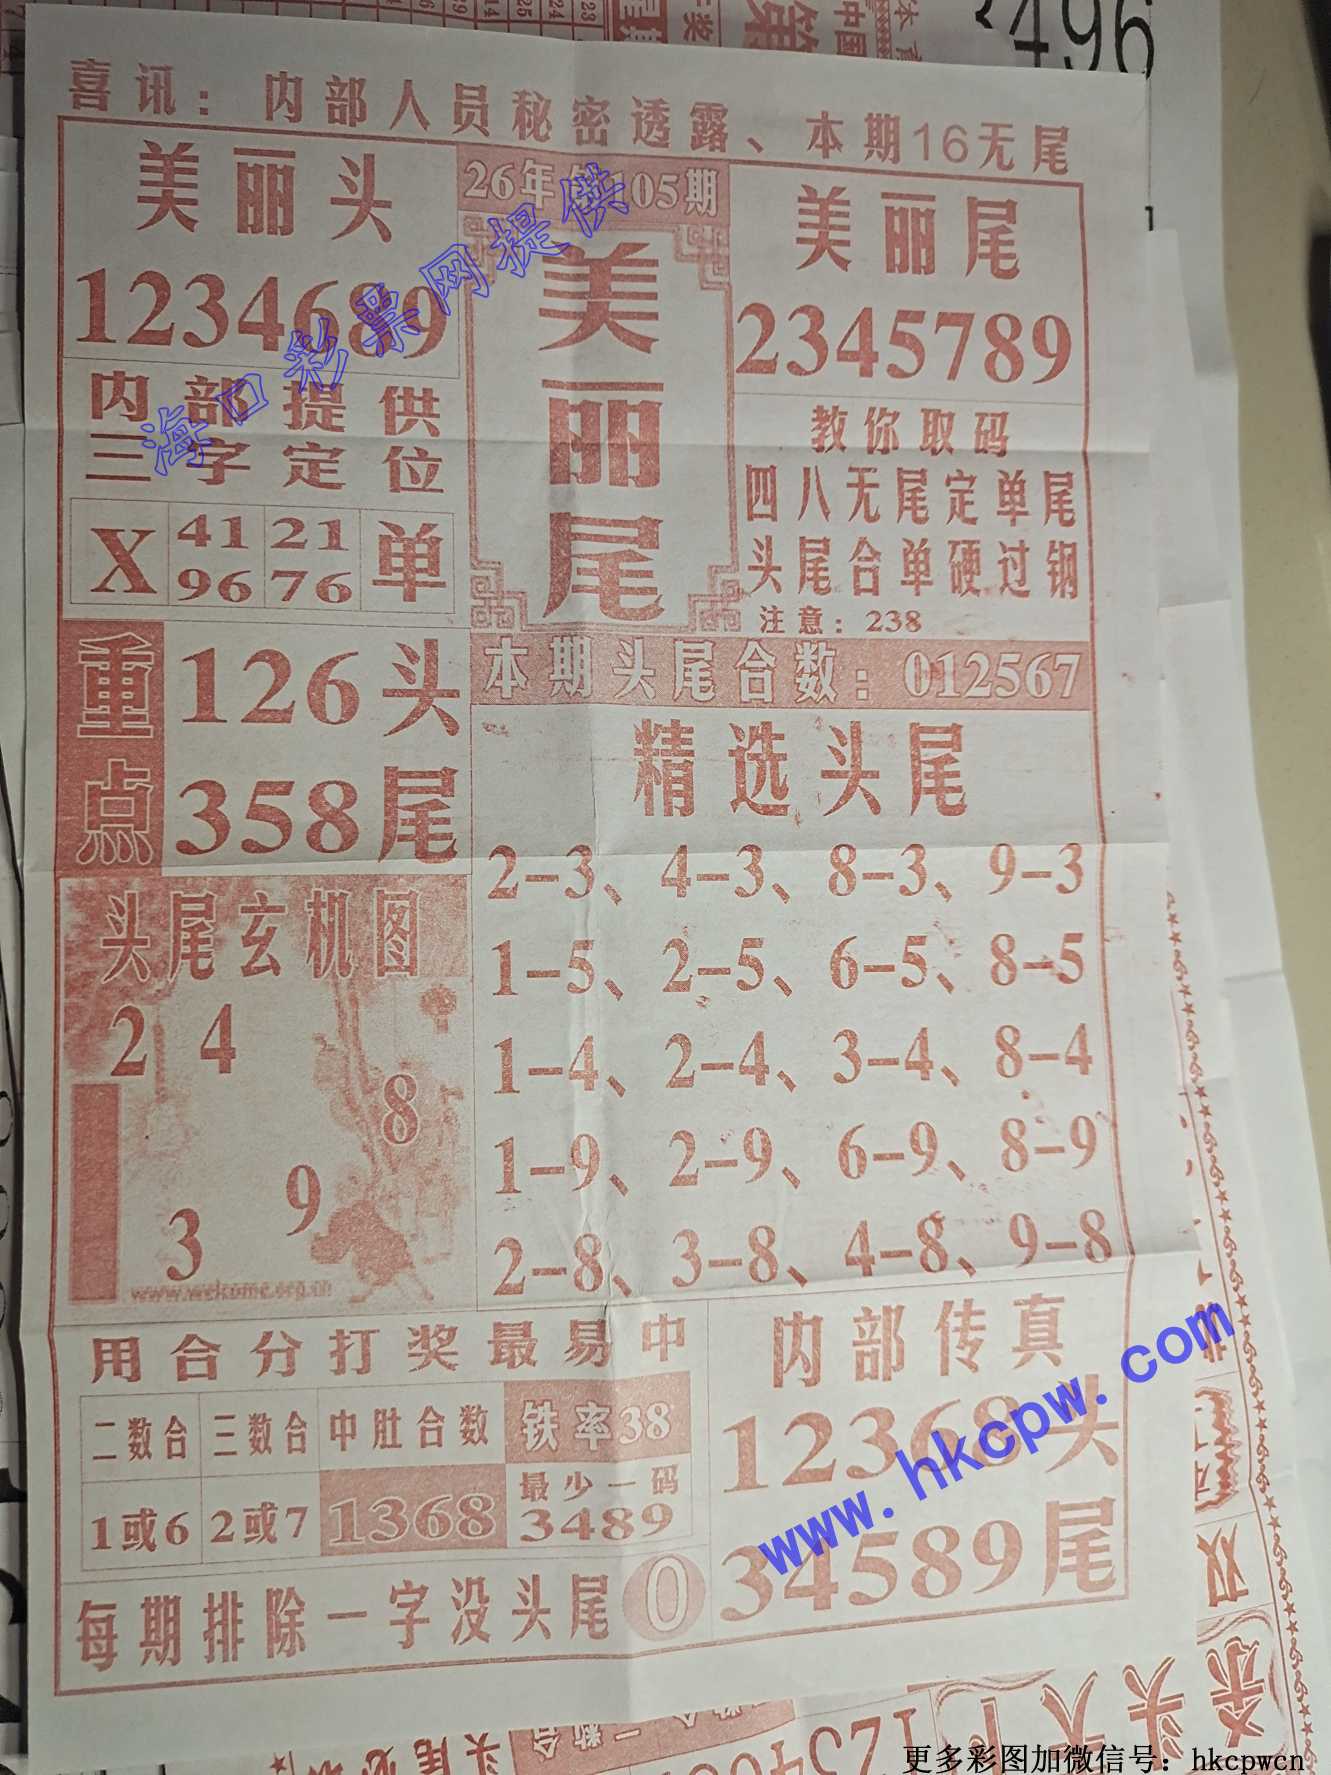 3496
喜讯：内部人员秘密透露、本期16无尾
美丽头
1234689
26年第105期
美丽尾
美丽尾
2345789
内部提供
三字定位
X 41 21 单
96 76
教你取码
四八无尾定单尾
头尾合单硬过钢
注意：238
重点
126头
358尾
本期头尾合数：012567
精选头尾
2-3、4-3、8-3、9-3
1-5、2-5、6-5、8-5
1-4、2-4、3-4、8-4
1-9、2-9、6-9、8-9
2-8、3-8、4-8、9-8
头尾玄机图
2 4
8
9
3
www.welcome.org.cn
用合分打奖最易中
二数合 三数合 中肚合数 铁率38
1或6 2或7 1368 最少一码
3489
每期排除一字没头尾 0
内部传真
12368头
34589尾
海口彩票网提供
www.hkcpw.com
更多彩图加微信号：hkcpwcn